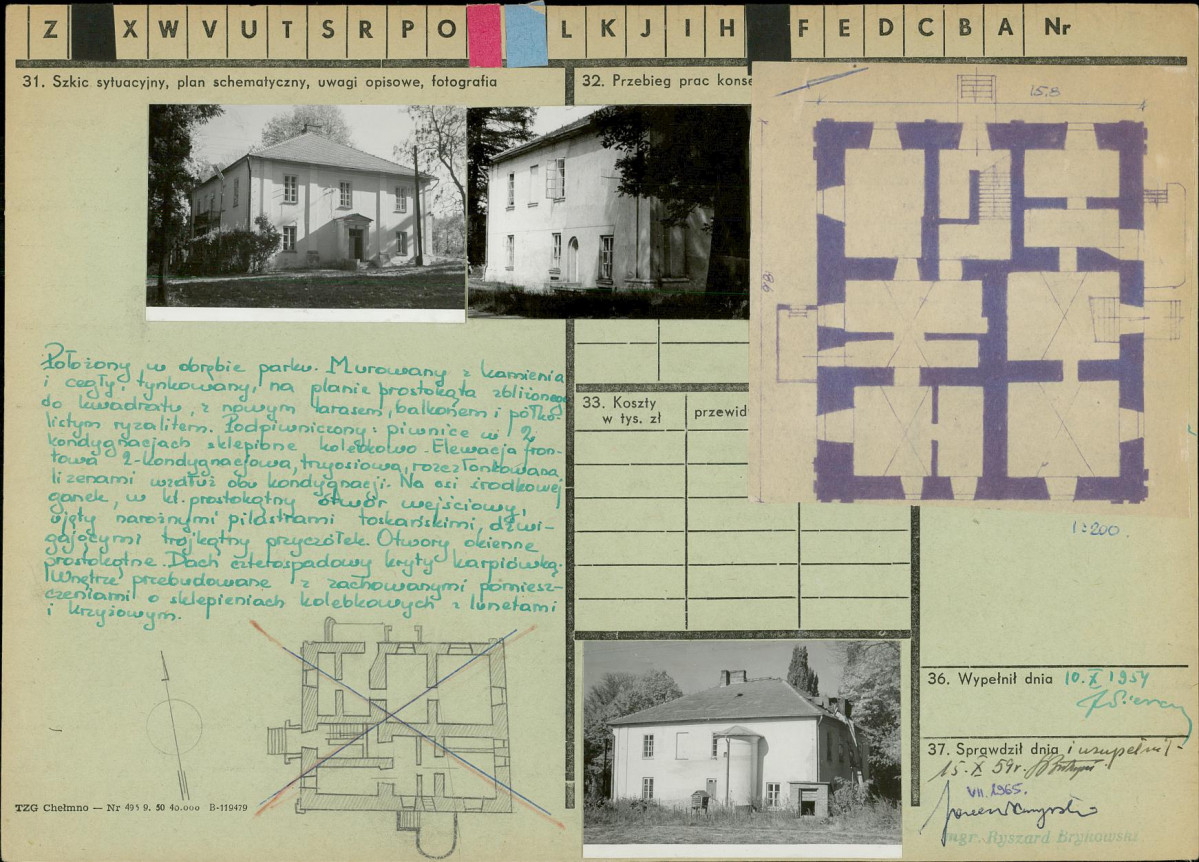 Z X W V U T S R P O L K J I H F E D C B A Nr
31. Szkic sytuacyjny, plan schematyczny, uwagi opisowe, fotografia
32. Przebieg prac konse
15.8
Położony w obrębie parku. Murowany z kamienia
i cegły, tynkowany, na planie prostokąta zbliżonego
do kwadratu, z nowym tarasem, balkonem i półko-
listym ryzalitem. Podpiwniczony: piwnice w 2
kondygnacjach sklepione kolebkowo. Elewacja fron-
towa 2-kondygnacjowa, trzyosiowa, rozczłonkowana
lizenami wzdłuż obu kondygnacji. Na osi środkowej
ganek, w kt. prostokątny otwór wejściowy,
ujęty narożnymi pilastrami toskańskimi, dźwi-
gającymi trójkątny przyczółek. Otwory okienne
prostokątne. Dach czterospadowy kryty karpiówką.
Wnętrze przebudowane z zachowanymi pomiesz-
czeniami o sklepieniach kolebkowych z lunetami
i krzyżowym.
33. Koszty
w tys. zł
przewid
1:200.
36. Wypełnił dnia 10.X 1954
37. Sprawdził dnia i uzupełnił-
15.X 59r.
VII.1965.
mgr. Ryszard Brykowski
TZG Chełmno — Nr 495 9. 50 40.000 B-119479